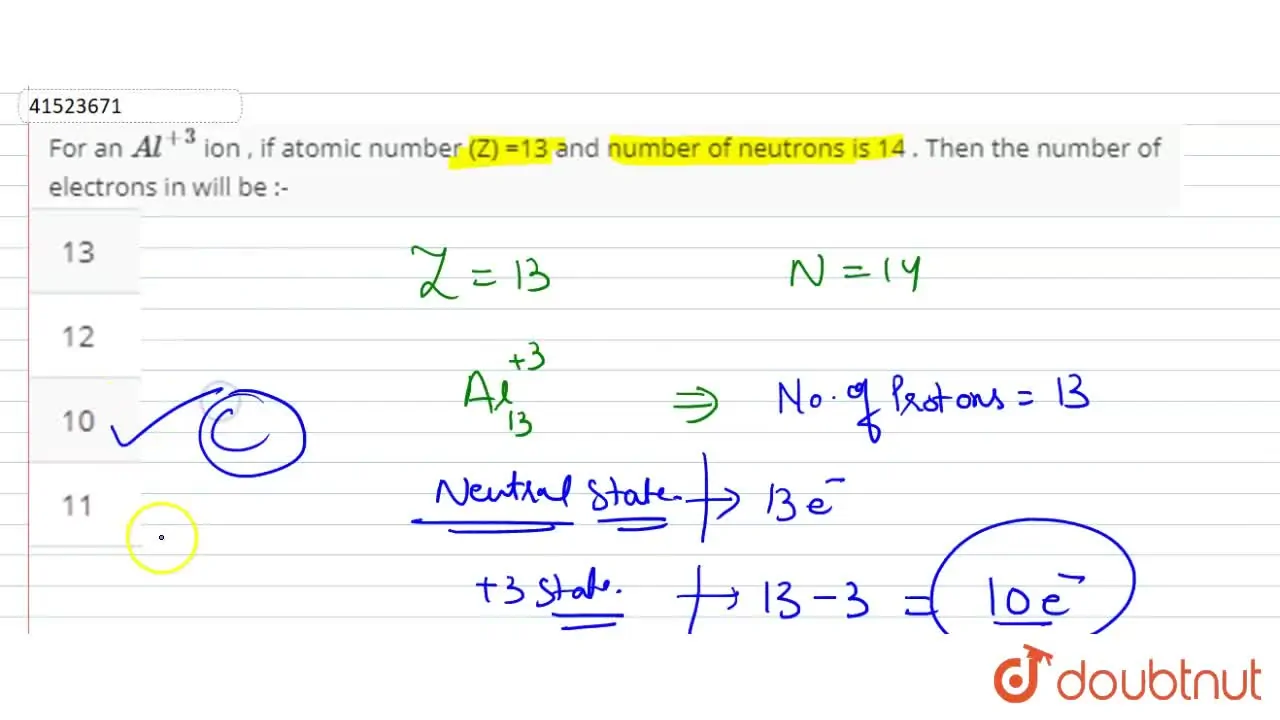 41523671
For an Al⁺³ ion , if atomic number (Z) =13 and number of neutrons is 14 . Then the number of
electrons in will be :-
13
12
10
11
C
Z = 13
N = 14
Al₁₃⁺³ ⇒ No. of Protons = 13
Neutral State. → 13 e⁻
+3 State. → 13 - 3 = 10 e⁻
doubtnut